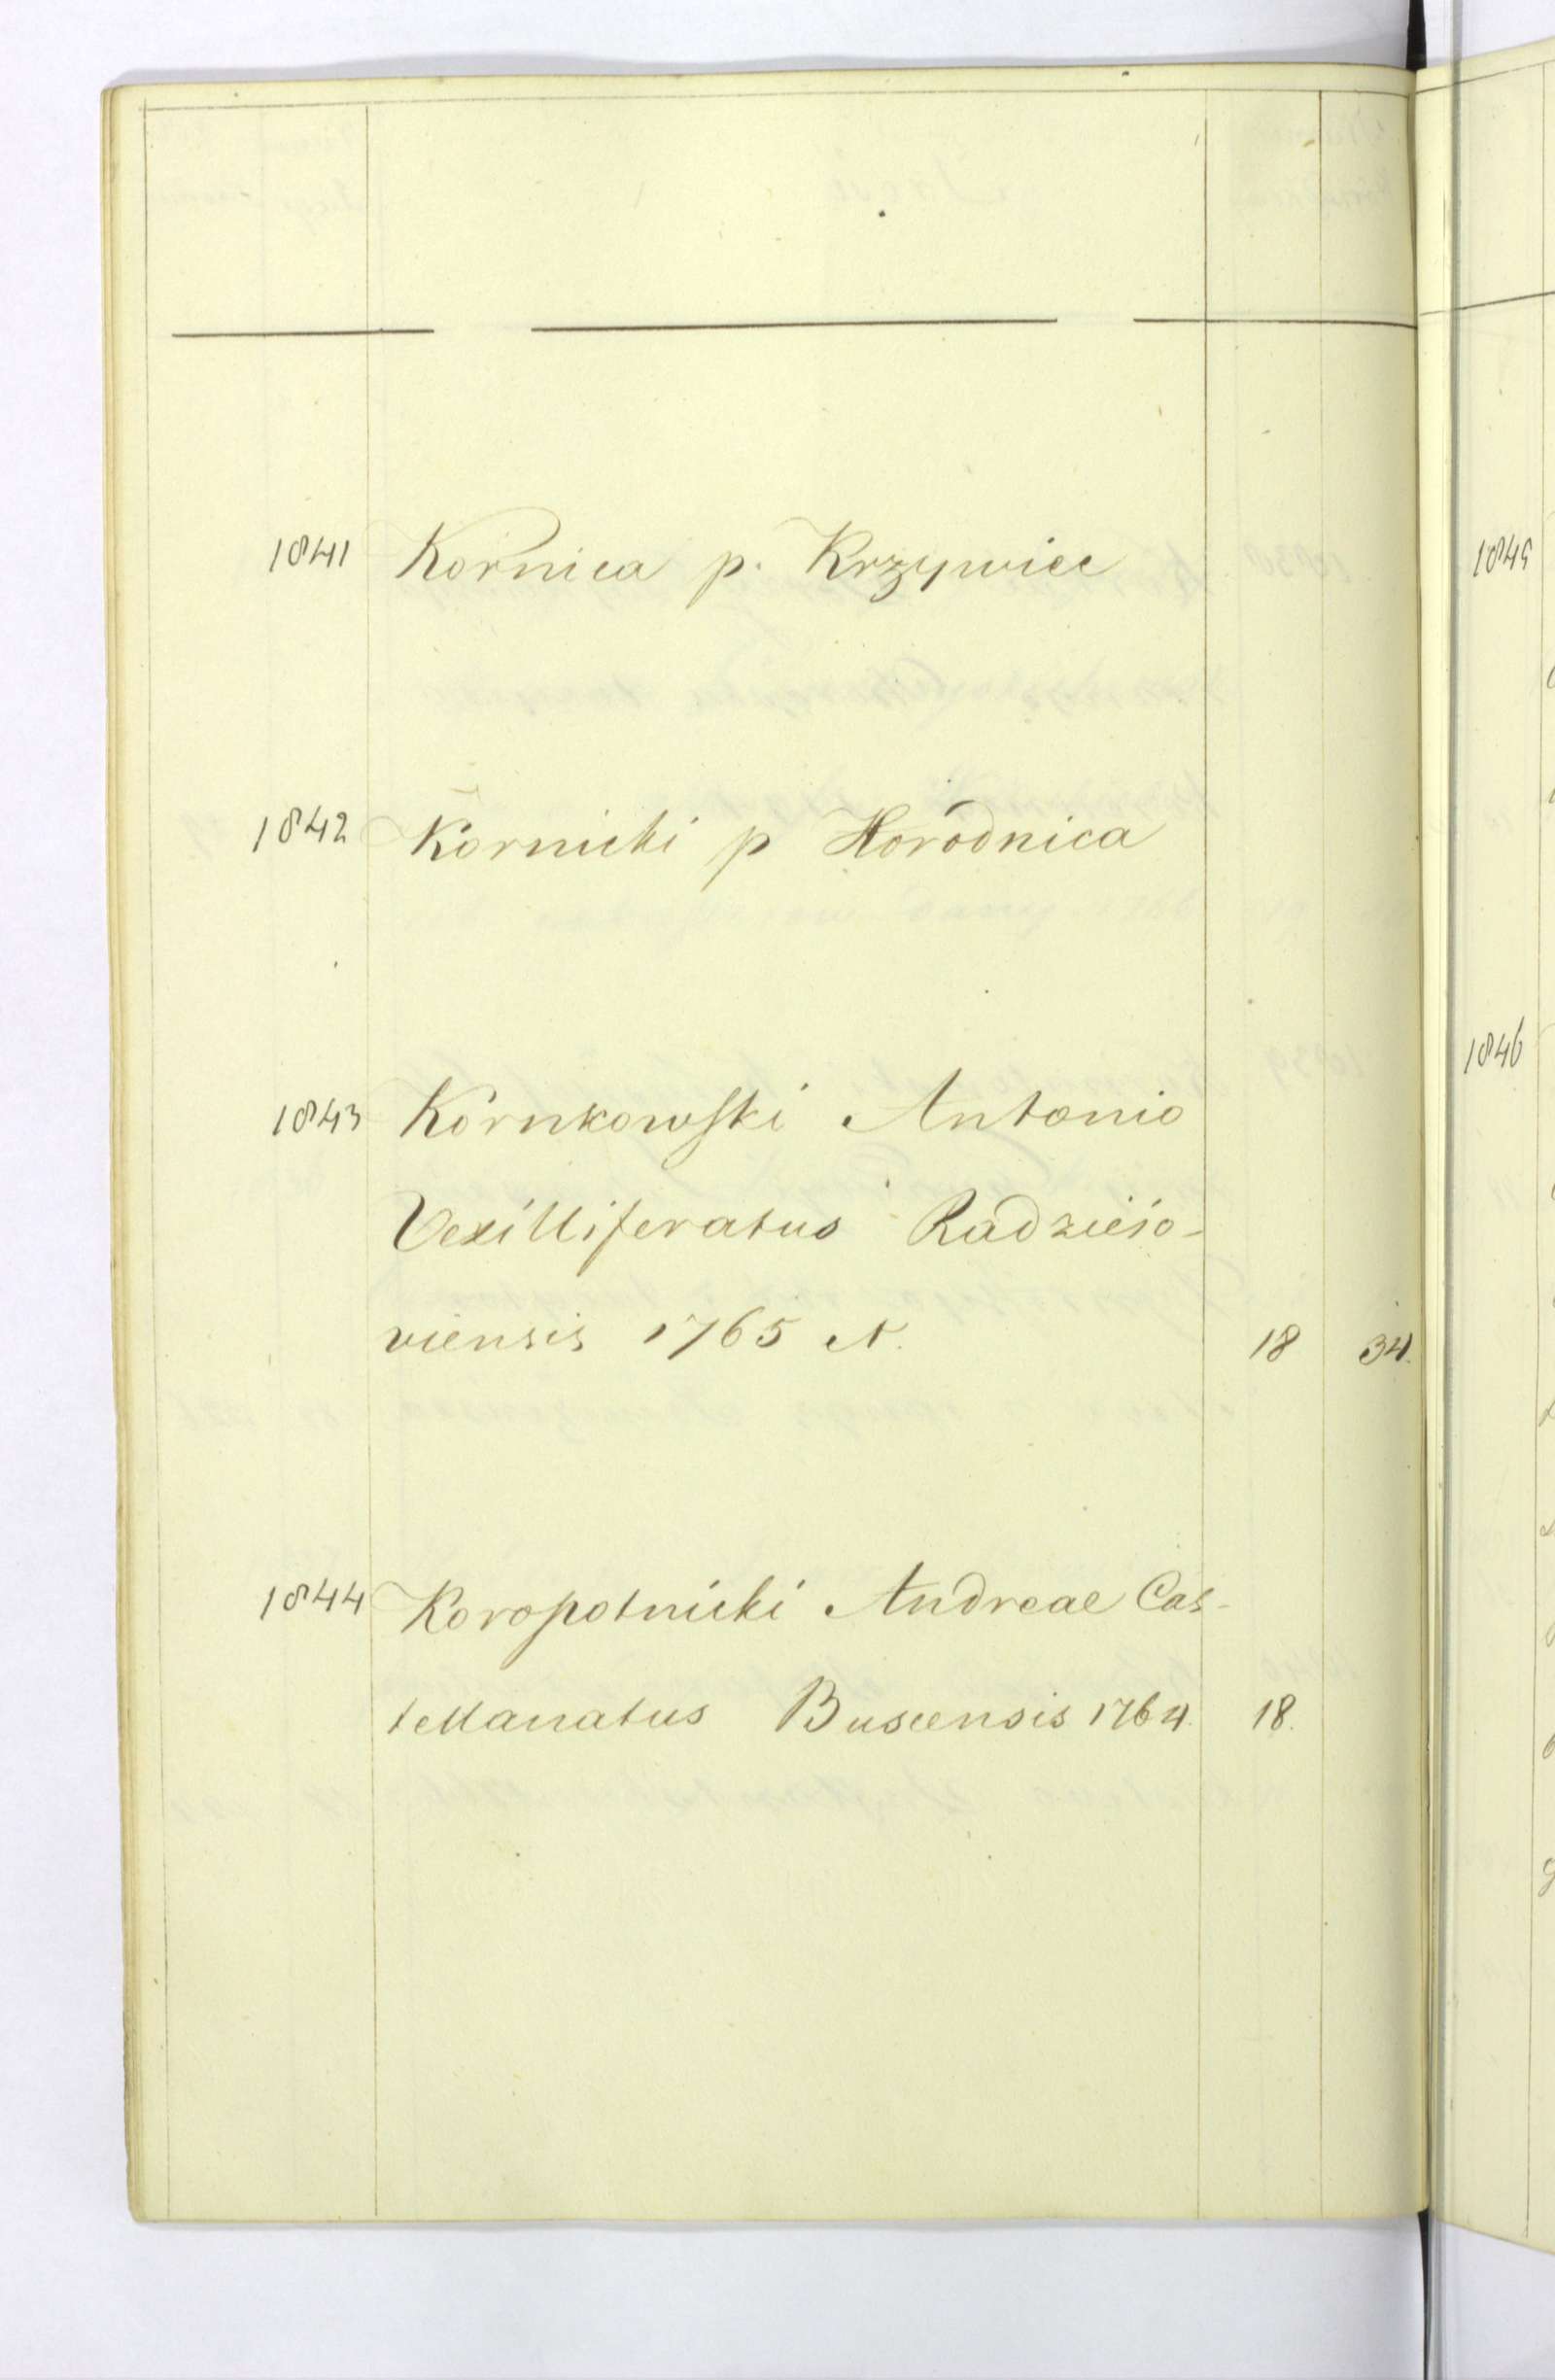 1841 Kornica p. Krzywiec
1842 Kornicki p Horodnica
1843 Kornkowski Antonio
Vexilliferatus Radziejo-
viensis 1765 N. 18 34.
1844 Koropotnicki Andreae Cas-
tellanatus Buscensis 1764. 18.
1845
1846